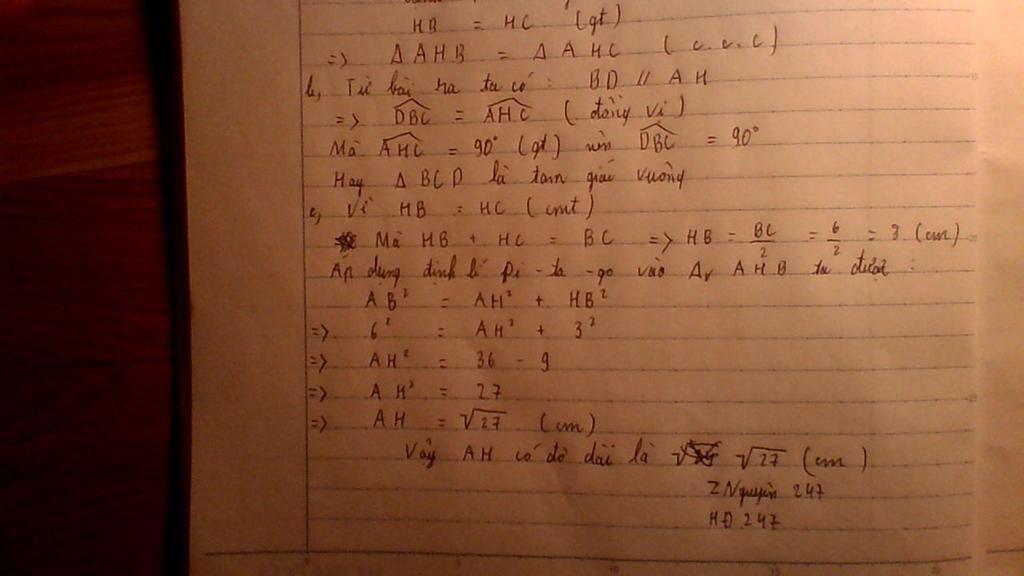 HB = HC (gt)
=> Δ AHB = Δ AHC (c.c.c)
b, Từ bài ra ta có : BD // AH
=> DBC = AHC (đồng vị)
Mà AHC = 90° (gt) nên DBC = 90°
Hay Δ BCD là tam giác vuông
c, Vì HB = HC (cmt)
Mà HB + HC = BC => HB = BC/2 = 6/2 = 3 (cm)
Áp dụng định lí Pi-ta-go vào Δv AHB ta được :
AB² = AH² + HB²
=> 6² = AH² + 3²
=> AH² = 36 - 9
=> AH² = 27
=> AH = √27 (cm)
Vậy AH có độ dài là √27 (cm)
ZNguyễn 247
HĐ 247